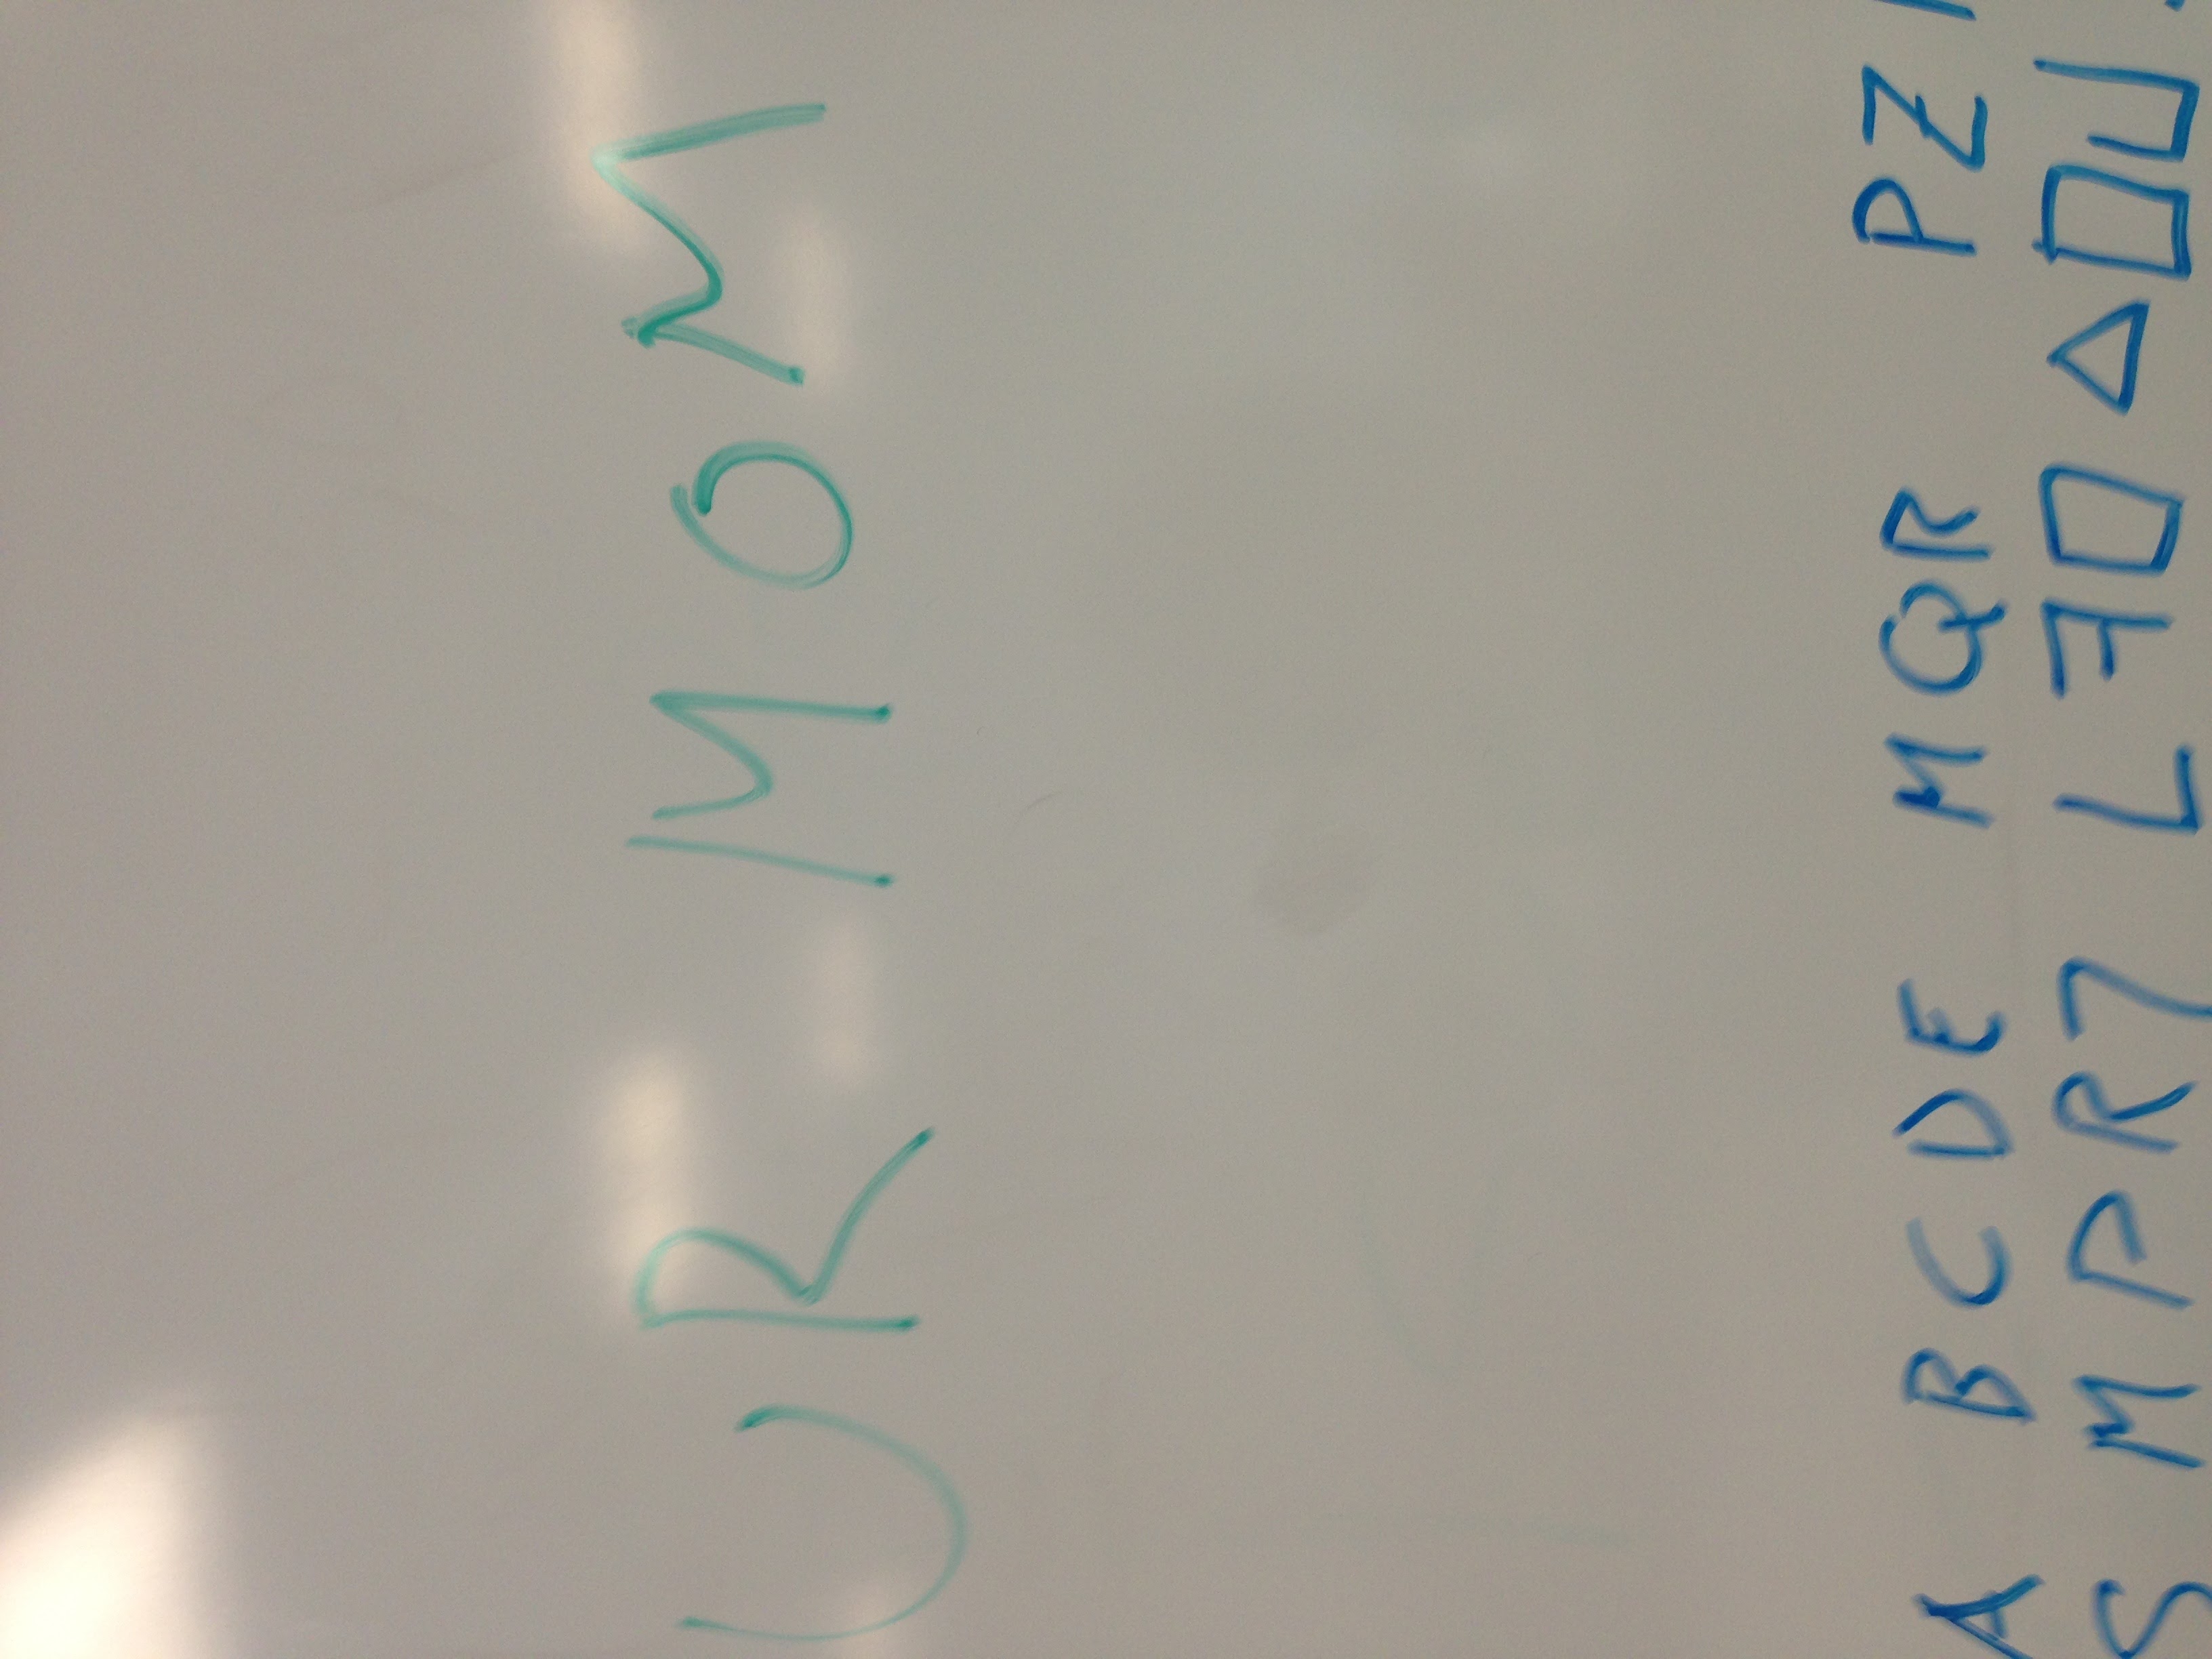 UR MOM
A BCDE MQR PZ
S MPR7 L